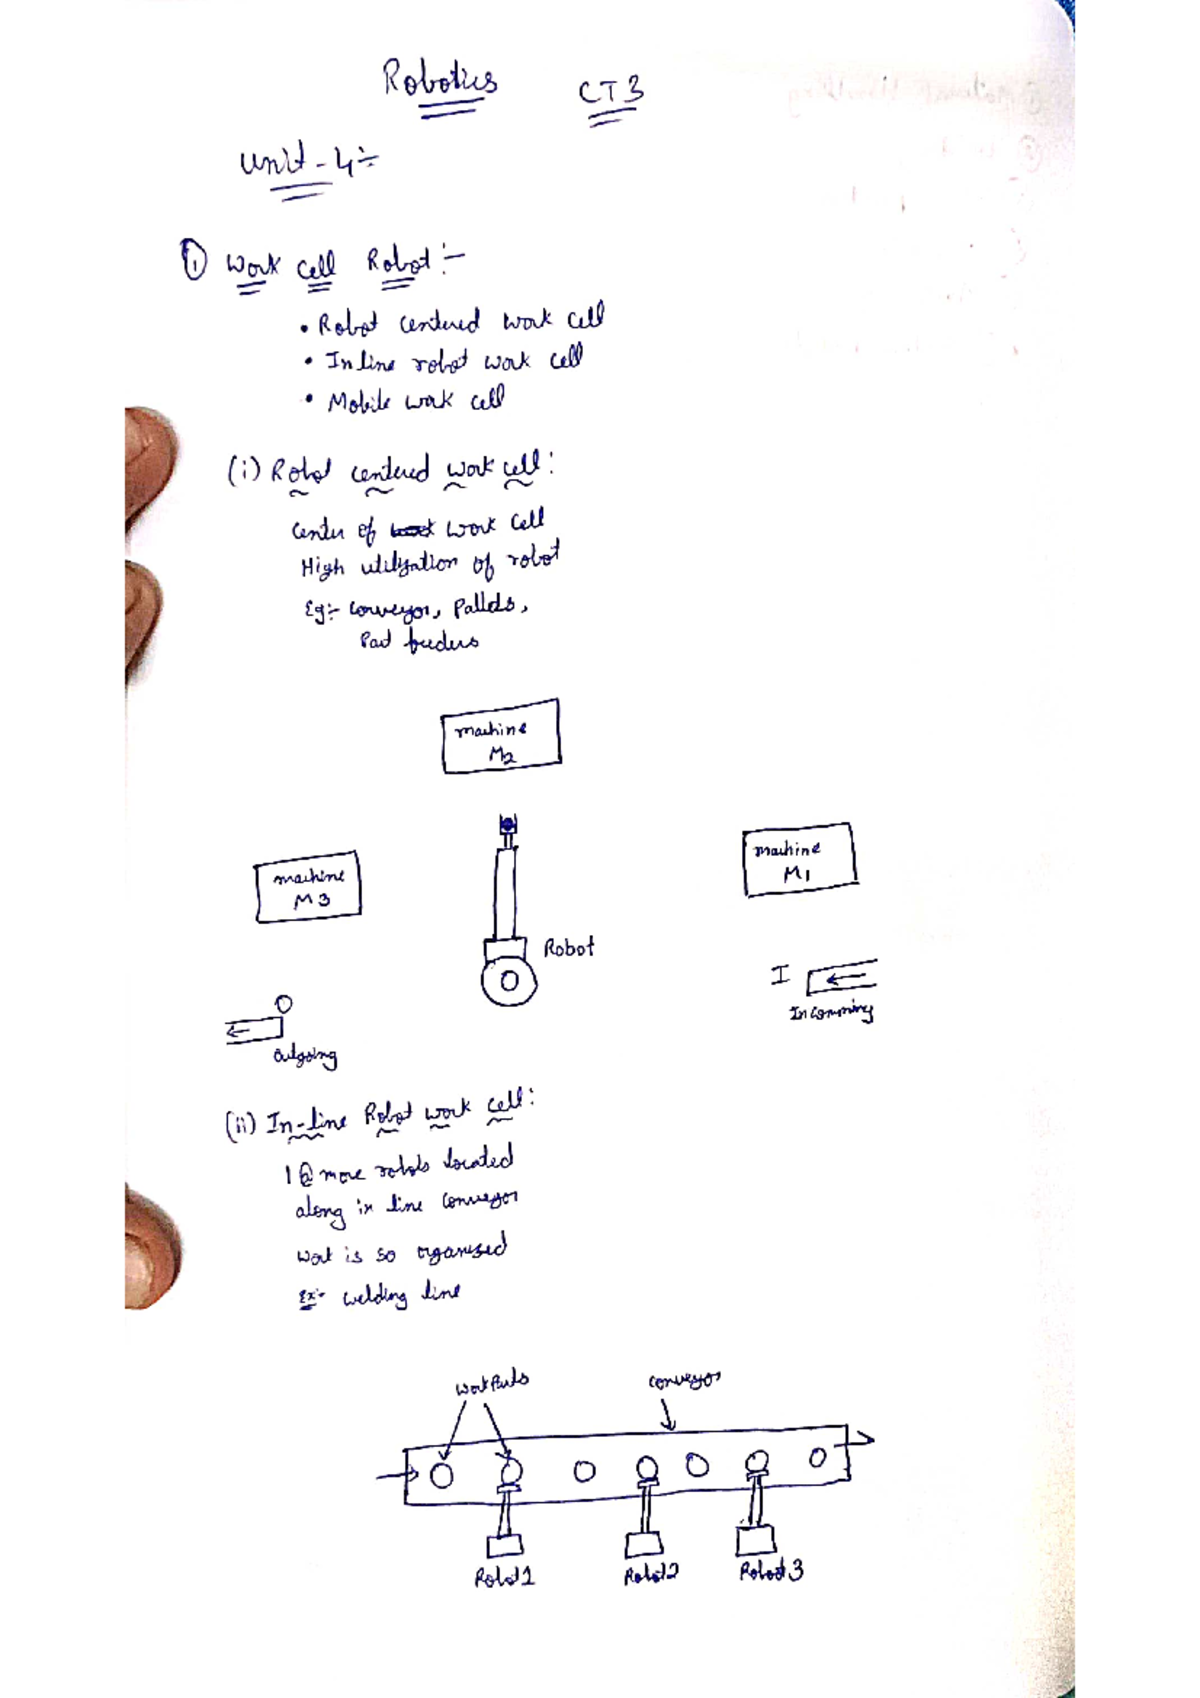 Robotics CT3
Unit - 4 :-
① Work Cell Robot :-
• Robot centered work cell
• In line robot work cell
• Mobile work cell
(i) Robot centered work cell :
Center of work cell
High utilization of robot
Eg:- conveyor, Pallets,
Part feeders
machine
M2
machine
M1
machine
M3
Robot
I
Incomming
Outgoing
(ii) In-line Robot work cell :
1 @ more robots located
along in line conveyor
Work is so organized
Ex:- welding line
Work Parts
conveyor
Robot 1
Robot 2
Robot 3